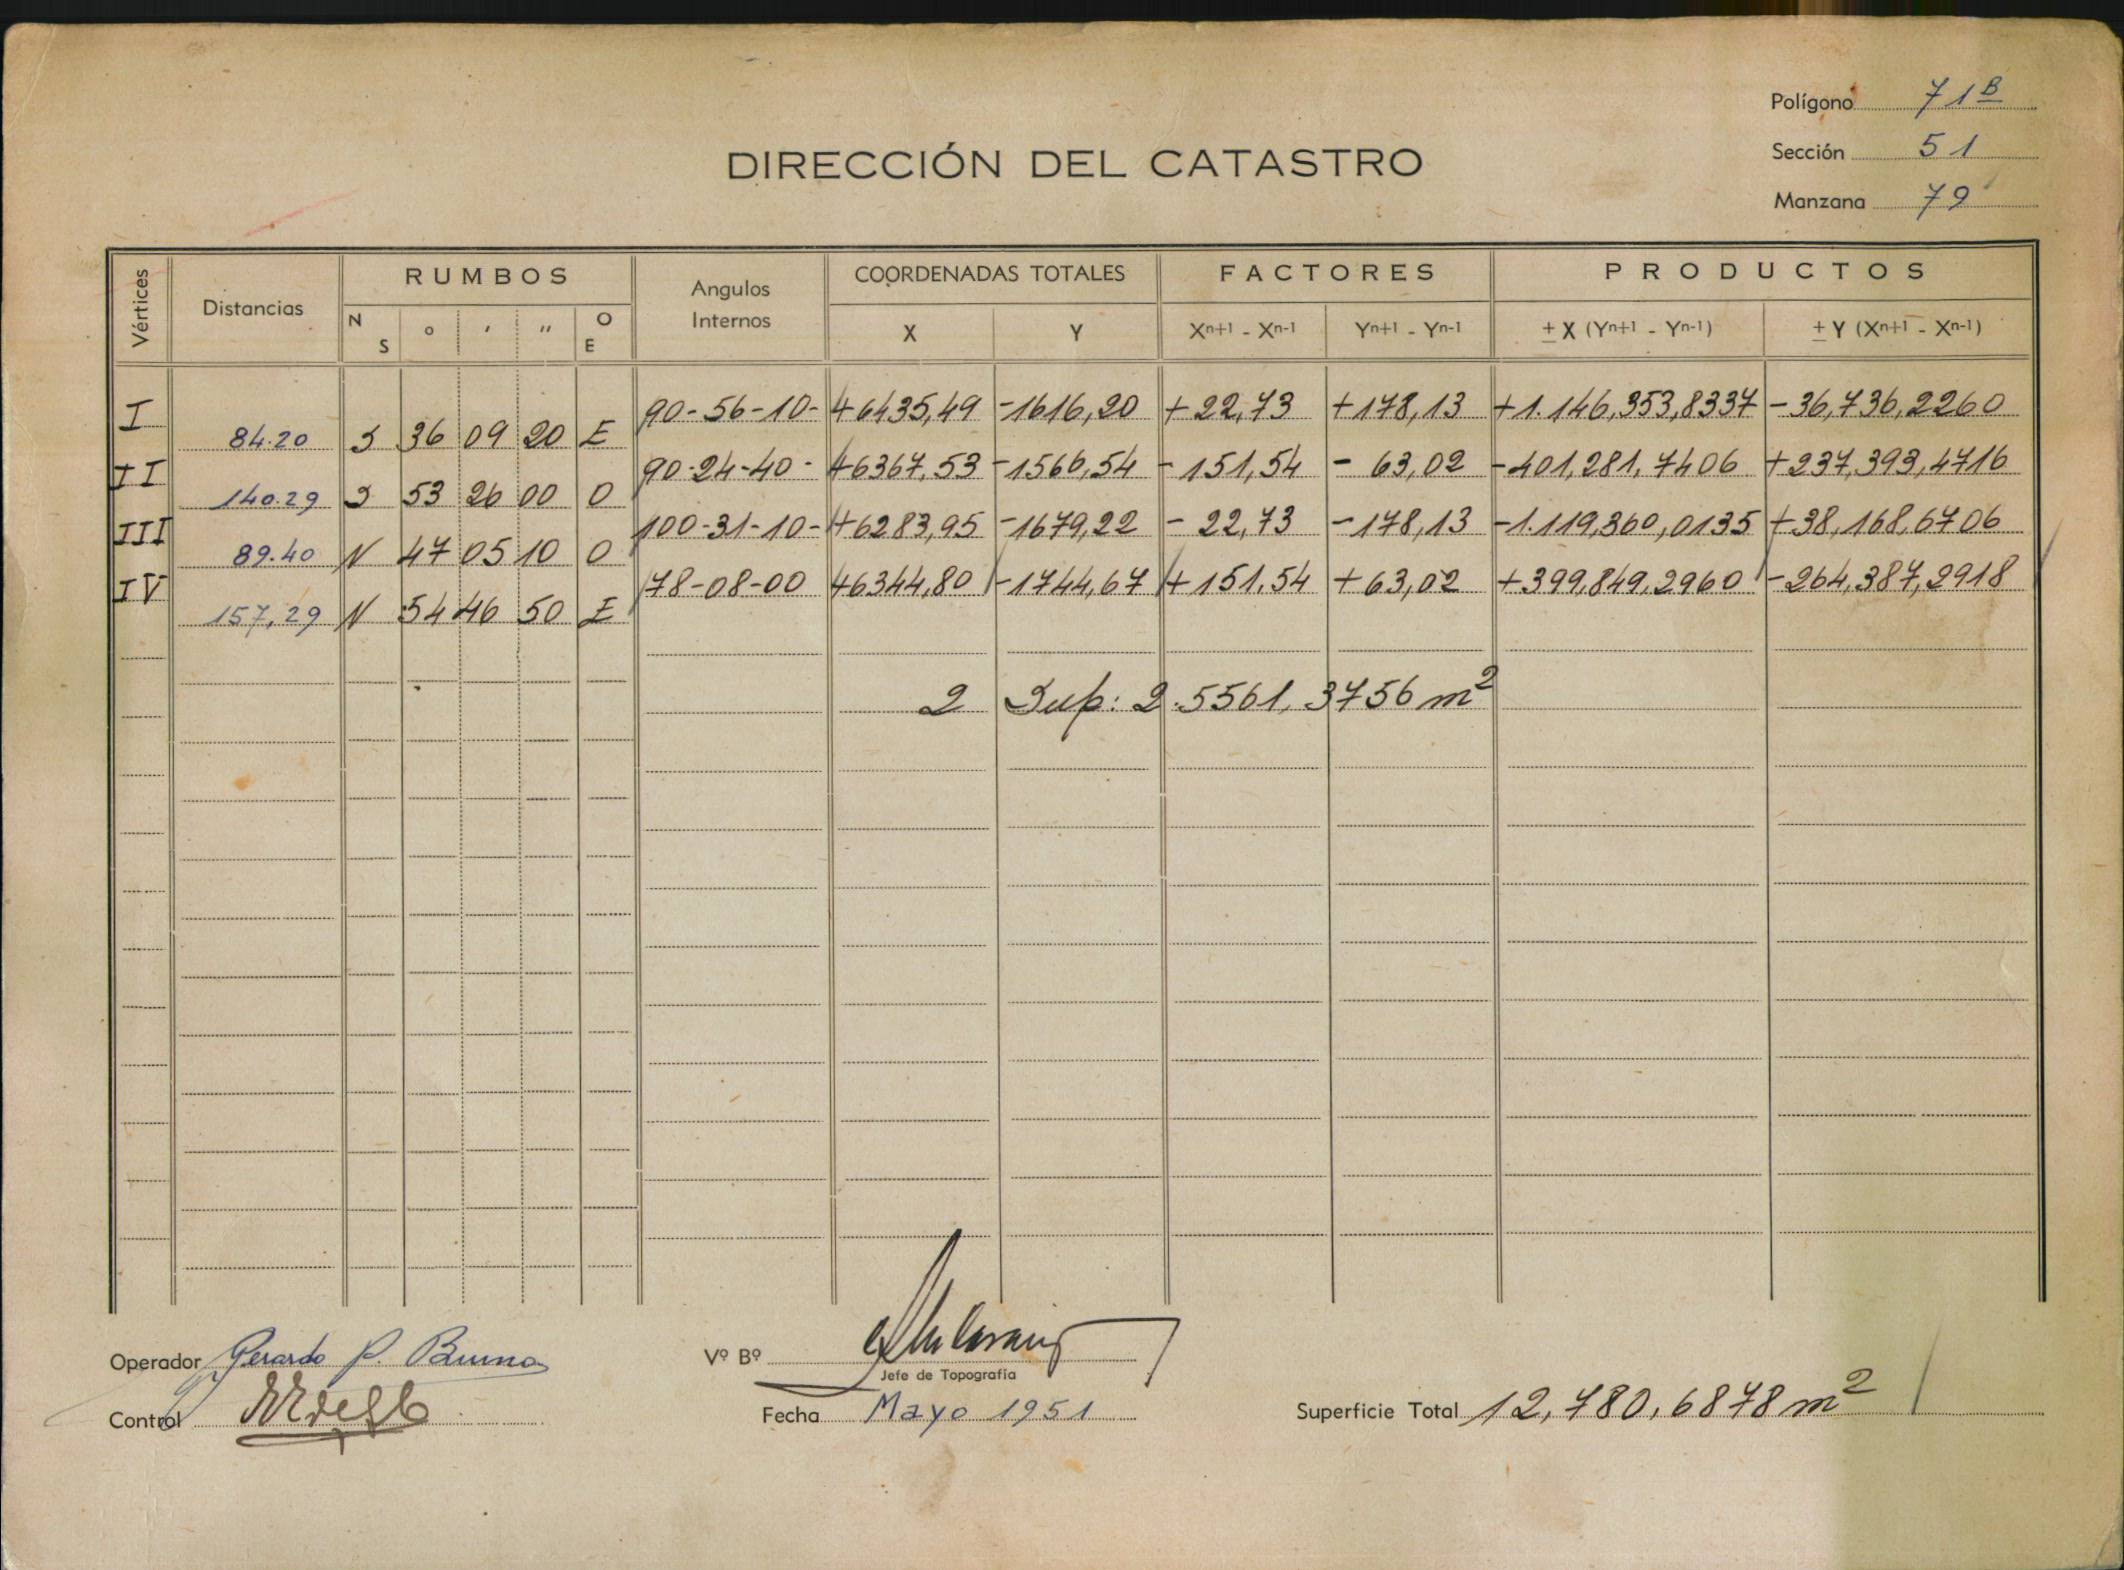 Polígono 71B
DIRECCIÓN DEL CATASTRO
Sección 51
Manzana 79
Vértices
Distancias
RUMBOS
N S ° ' " O E
Angulos Internos
COORDENADAS TOTALES
X Y
FACTORES
Xn+1 - Xn-1 Yn+1 - Yn-1
PRODUCTOS
± X (Yn+1 - Yn-1) ± Y (Xn+1 - Xn-1)
I 90-56-10- +6435,49 -1616,20 +22,73 +178,13 +1.146,353,8337 -36,736,2260
84.20 S 36 09 20 E
II 90-24-40- +6367,53 -1566,54 -151,54 -63,02 -401,281,7406 +237,393,4716
140.29 S 53 26 00 O
III 100-31-10- +6283,95 -1679,22 -22,73 -178,13 -1.119,360,0135 +38,168,6706
89.40 N 47 05 10 O
IV 78-08-00 +6344,80 -1744,67 +151,54 +63,02 +399,849,2960 -264,387,2918
157,29 N 54 46 50 E
2 Sup: 2.5561,3756 m2
Operador Gerardo P. Bruno
Vº Bº
Jefe de Topografía
Control
Fecha Mayo 1951
Superficie Total 12,780,6878 m2